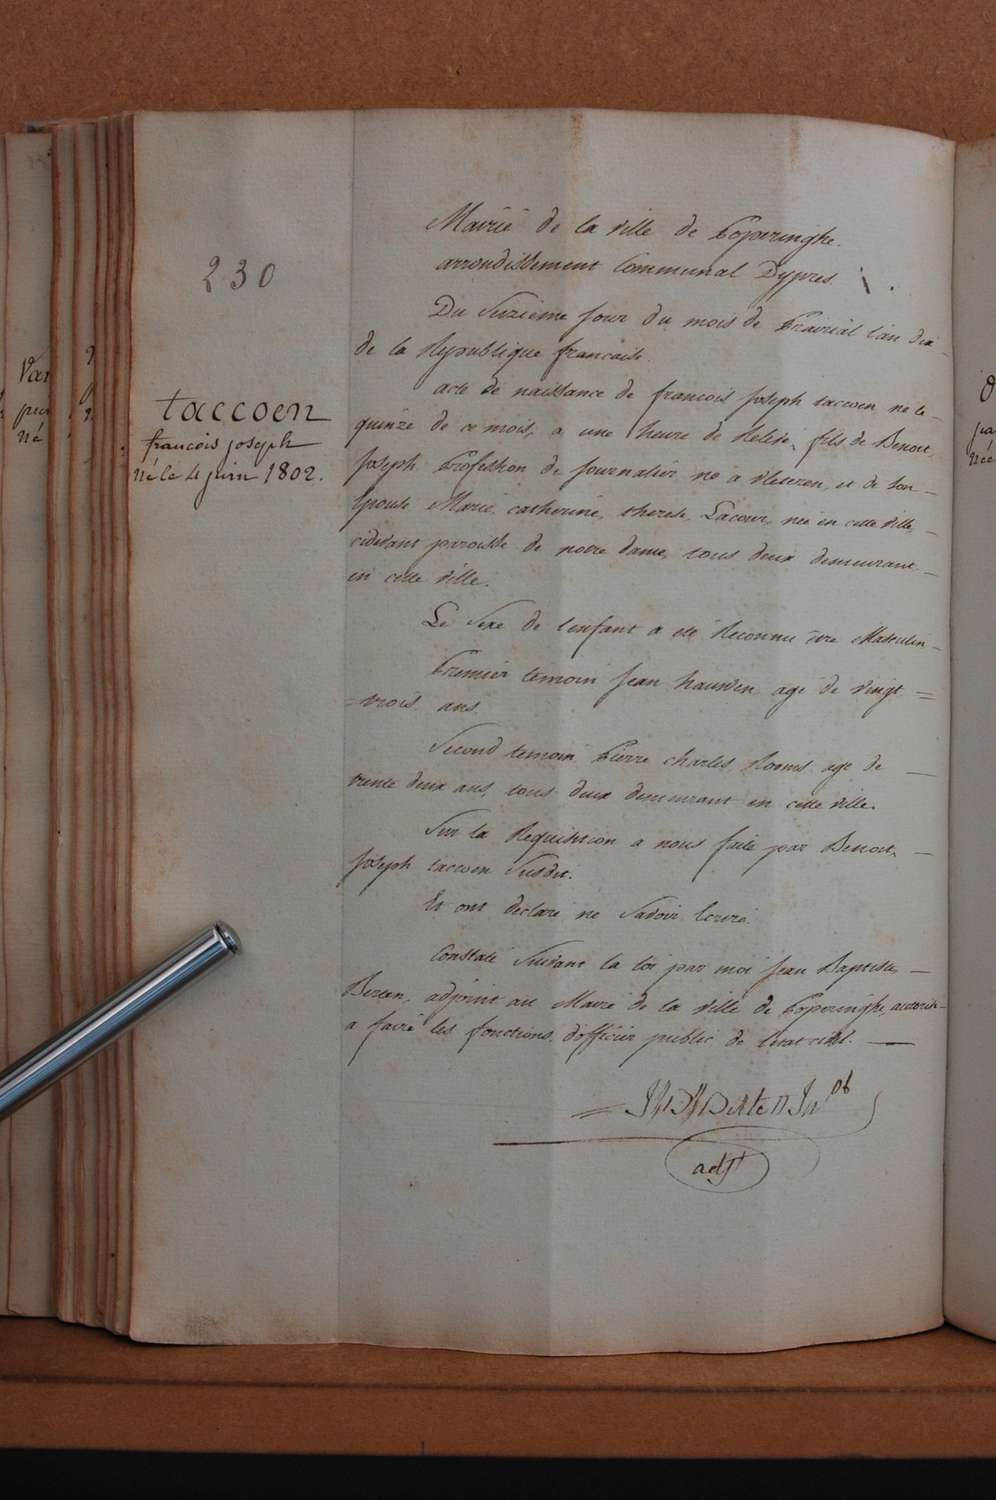 230
taccoen
francois joseph
né le 4 juin 1802.
Mairie de la ville de Poperinghe.
arrondissement Communal Dypres.
Du Seizieme jour du mois de Prairial l'an dix
de la Republique francaise.
acte de naissance de francois joseph taccoen, né le
quinze de ce mois, a une heure de Relevé, fils de Benoit
joseph profession de journalier né a Vleteren, et de Son
Epouse Marie, catherine, therese, Lacour, née en cette ville,
cidevant paroisse de notre dame, tous deux demeurant
en cette ville.
Le Sexe de l'enfant a eté Reconnu etre Masculin
Premier temoin jean hauwen agé de vingt =
= trois ans
Second temoin Pierre charles Rooms agé de
trente deux ans, tous deux demeurant en cette ville.
Sur la Requisition a nous faite par Benoit,
joseph taccoen Susdit.
Et ont declaré ne Savoir Ecrire
Constaté Suivant la loi par moi jean Baptiste
Berten, adjoint au Maire de la ville de Poperinghe, autorisé
a faire les fonctions, d'officier public de l'etat civil.
adjt
Van
né
né